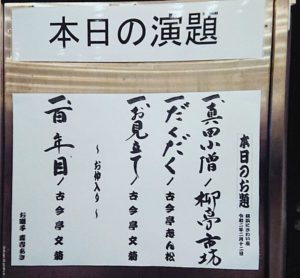 本日の演題
本日のお題
一、真田小僧 柳亭市坊
一、だくだく 古今亭志ん松
一、お見立て 古今亭文菊
〜お仲入り〜
一、百年目 古今亭文菊
お囃子